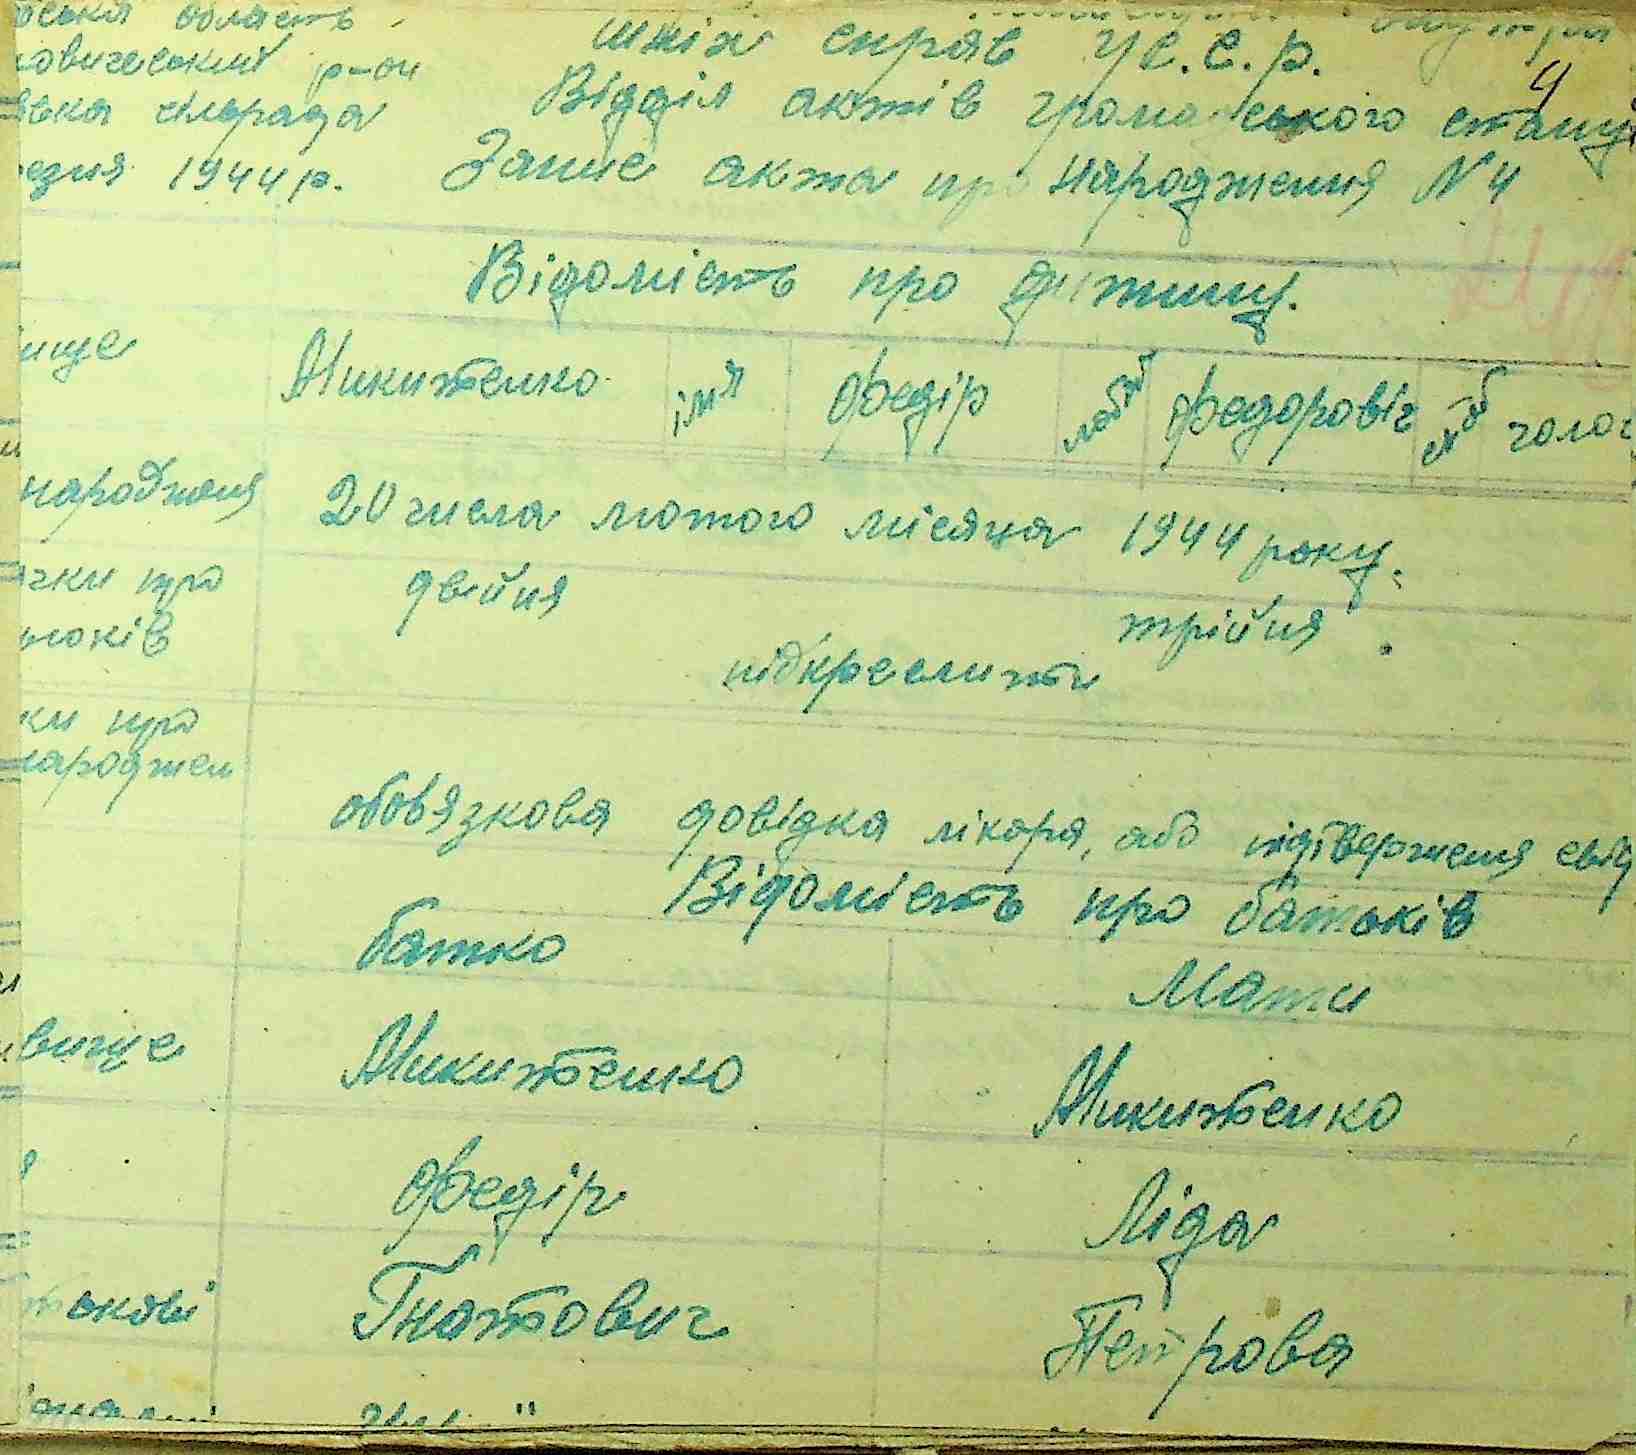 ська область
овичеський р-он
шніх справ У.С.С.Р.
9
вка сільрада
Відділ актів грома ського стану
езня 1944 р.
Запис акта про народження N 4
Відомість про дитину.
ище Микитенко ім'я Федір по бат Федоровіч голов
народженя 20 числа лютого місяця 1944 року.
чки про двійня трійня.
підкреслити
ки про
народжен
обовязкова довідка лікаря, або підтверженя свід
Відомість про батьків
батко Мати
вище Микитенко Микитенко
я Федір Ліда
Гнатович Петрова